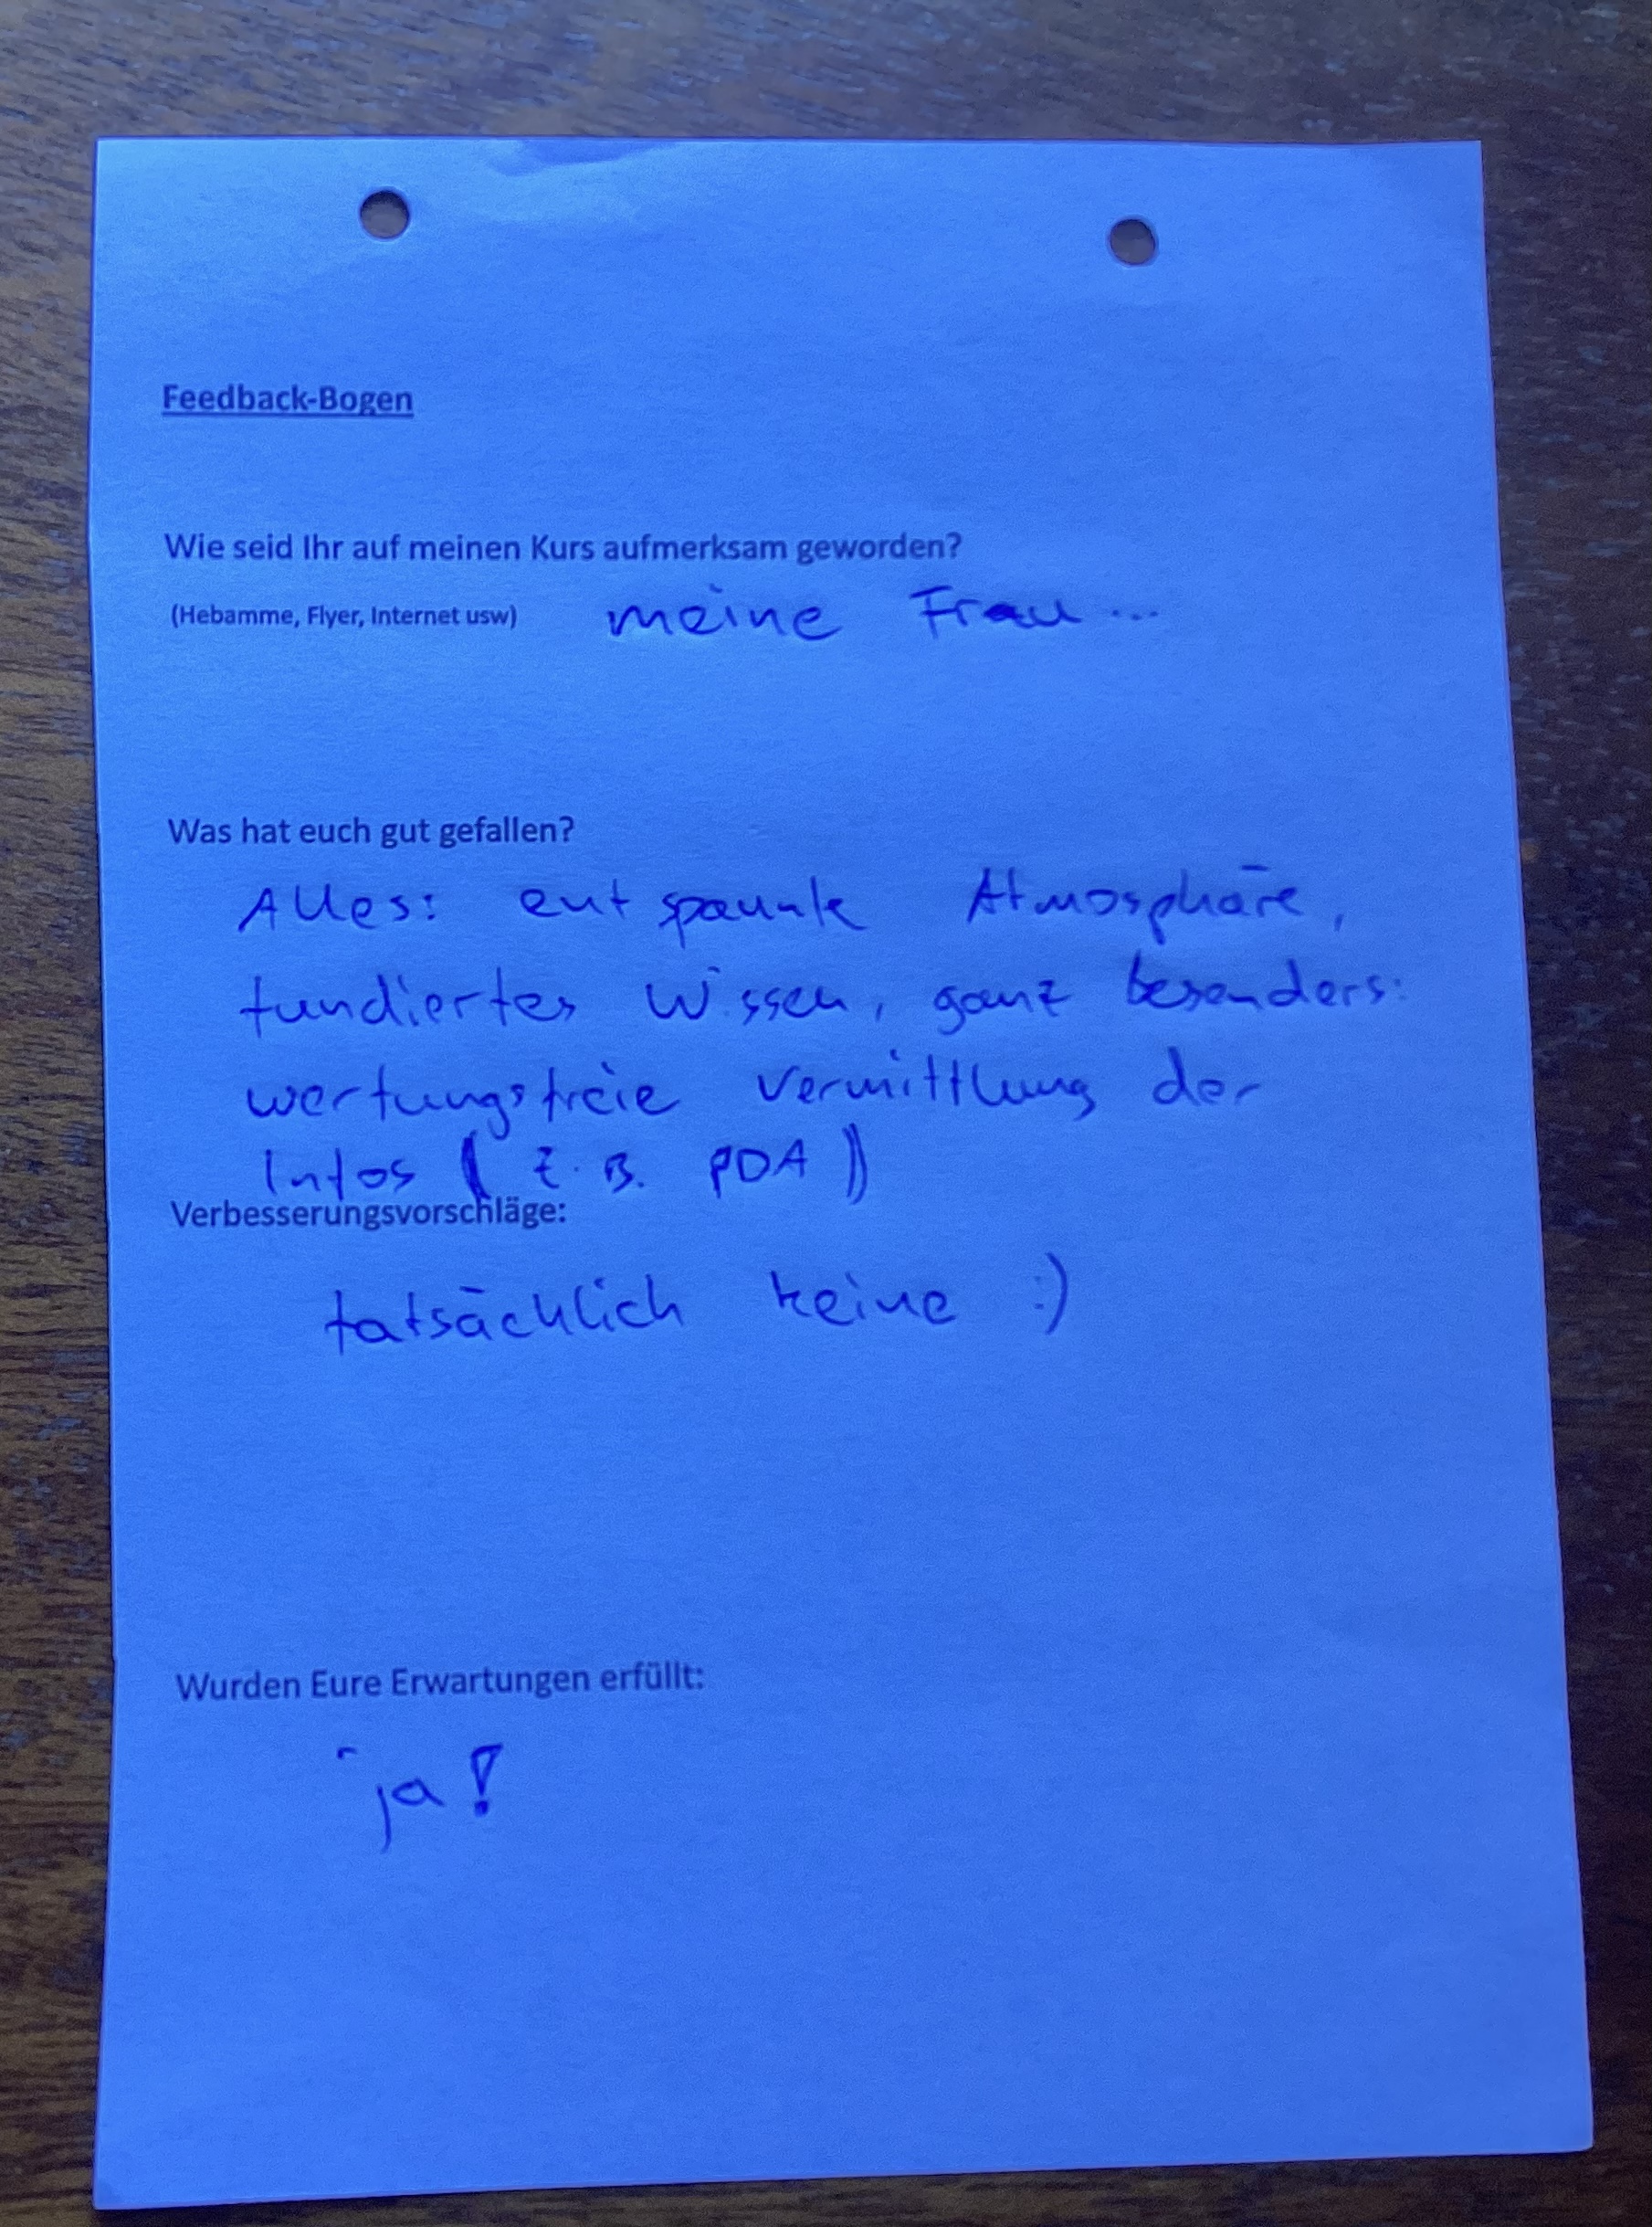 Feedback-Bogen
Wie seid Ihr auf meinen Kurs aufmerksam geworden?
(Hebamme, Flyer, Internet usw) meine Frau...
Was hat euch gut gefallen?
Alles: entspannte Atmosphäre,
fundiertes Wissen, ganz besonders:
wertungsfreie Vermittlung der
Infos (z.B. PDA)
Verbesserungsvorschläge:
tatsächlich keine :)
Wurden Eure Erwartungen erfüllt:
ja!